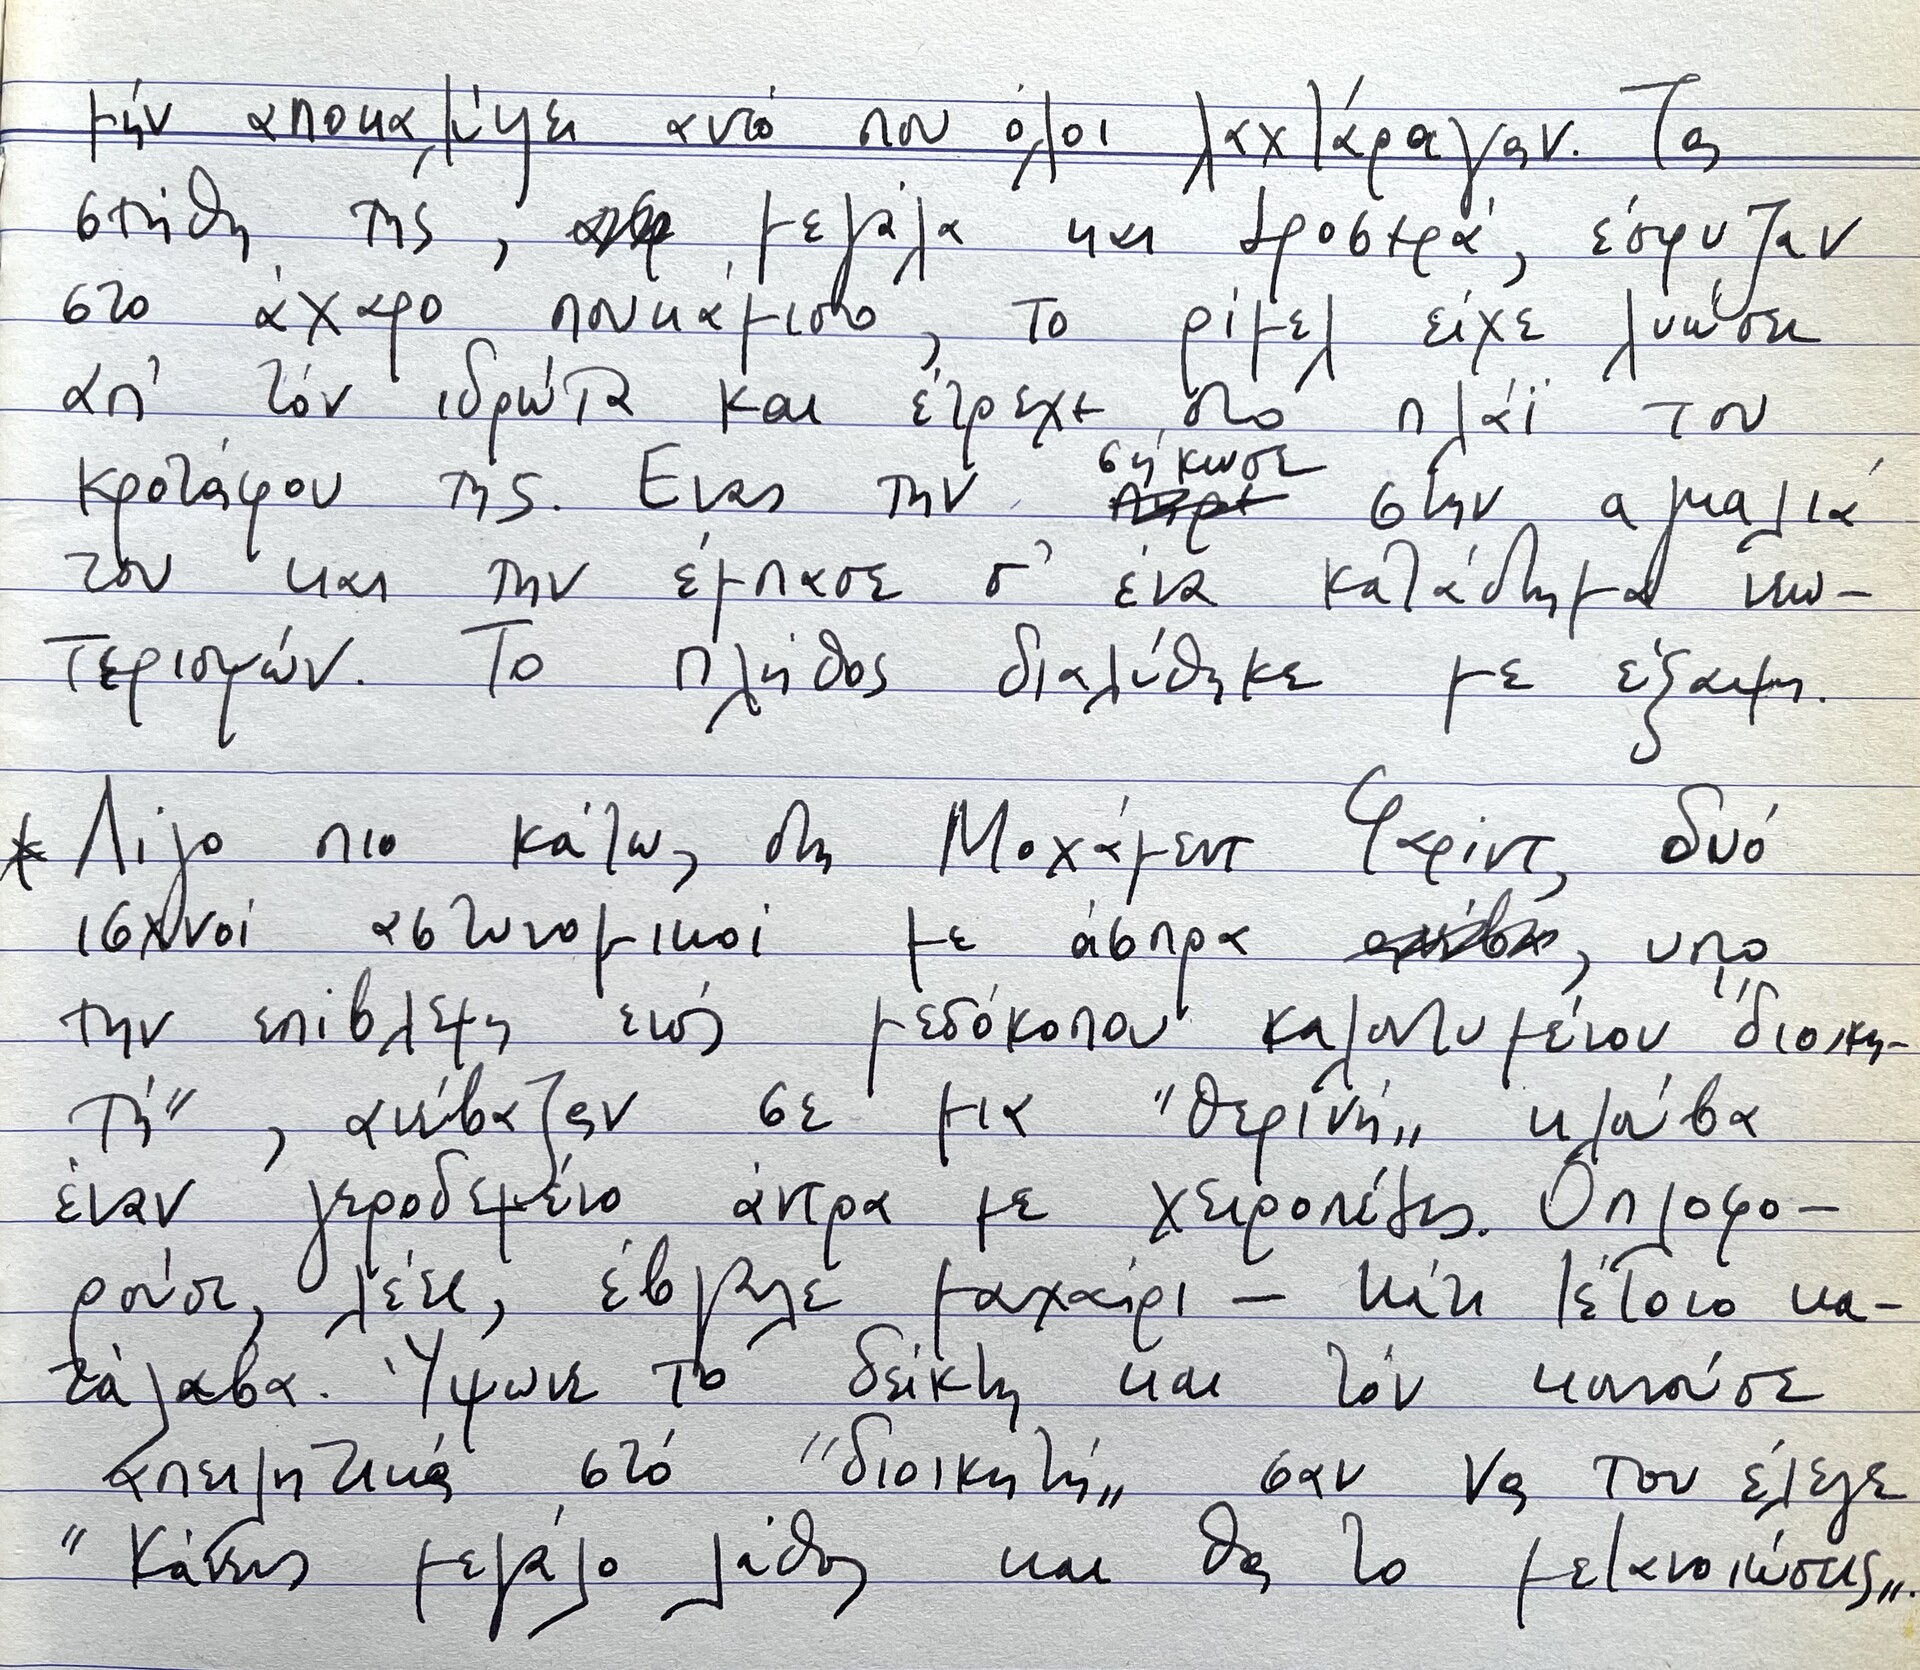 μήν αποκαλύψει αυτό που όλοι λαχτάραγαν. Τα
στήθη της, μεγάλα και δροσερά, έσφυζαν
στο άχαρο πουκάμισο, το ρίμελ είχε λυώσει
απ' τόν ιδρώτα και έτρεχε στο πλάϊ του
κροτάφου της. Ενας την σήκωσε στην αγκαλιά
του και την έμπασε σ' ένα κατάστημα νεω-
τερισμών. Το πλήθος διαλύθηκε με έξαψη.
* Λίγο πιο κάτω, στη Μοχάμεντ Φαρίντ, δυό
ισχνοί αστυνομικοί με άσπρα, υπό
την επίβλεψη ενός μεσόκοπου καλοντυμένου "διοικη-
τή", ανέβαζαν σε μια "θερινή" κλούβα
έναν γεροδεμένο άντρα με χειροπέδες. Οπλοφο-
ρούσε, λέει, έβγαλε μαχαίρι – κάτι τέτοιο κα-
τάλαβα. Ύψωνε το δείκτη και τόν κουνούσε
απειλητικά στό "διοικητή" σαν να του έλεγε
"Κάνεις μεγάλο λάθος και θα το μετανοιώσεις".